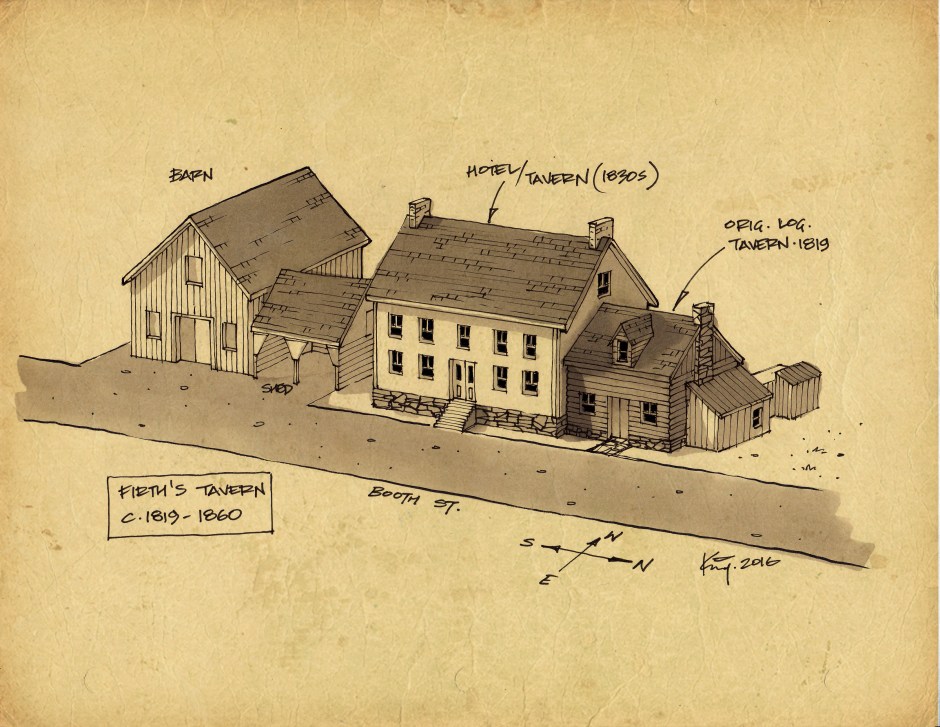 BARN
HOTEL/TAVERN (1830S)
ORIG. LOG.
TAVERN. 1819
SHED
FIRTH'S TAVERN
C. 1819 - 1860
BOOTH ST.
S
W
E
N
2016